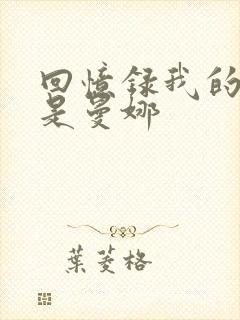 回憶録我的
是曼娜
葉菱格